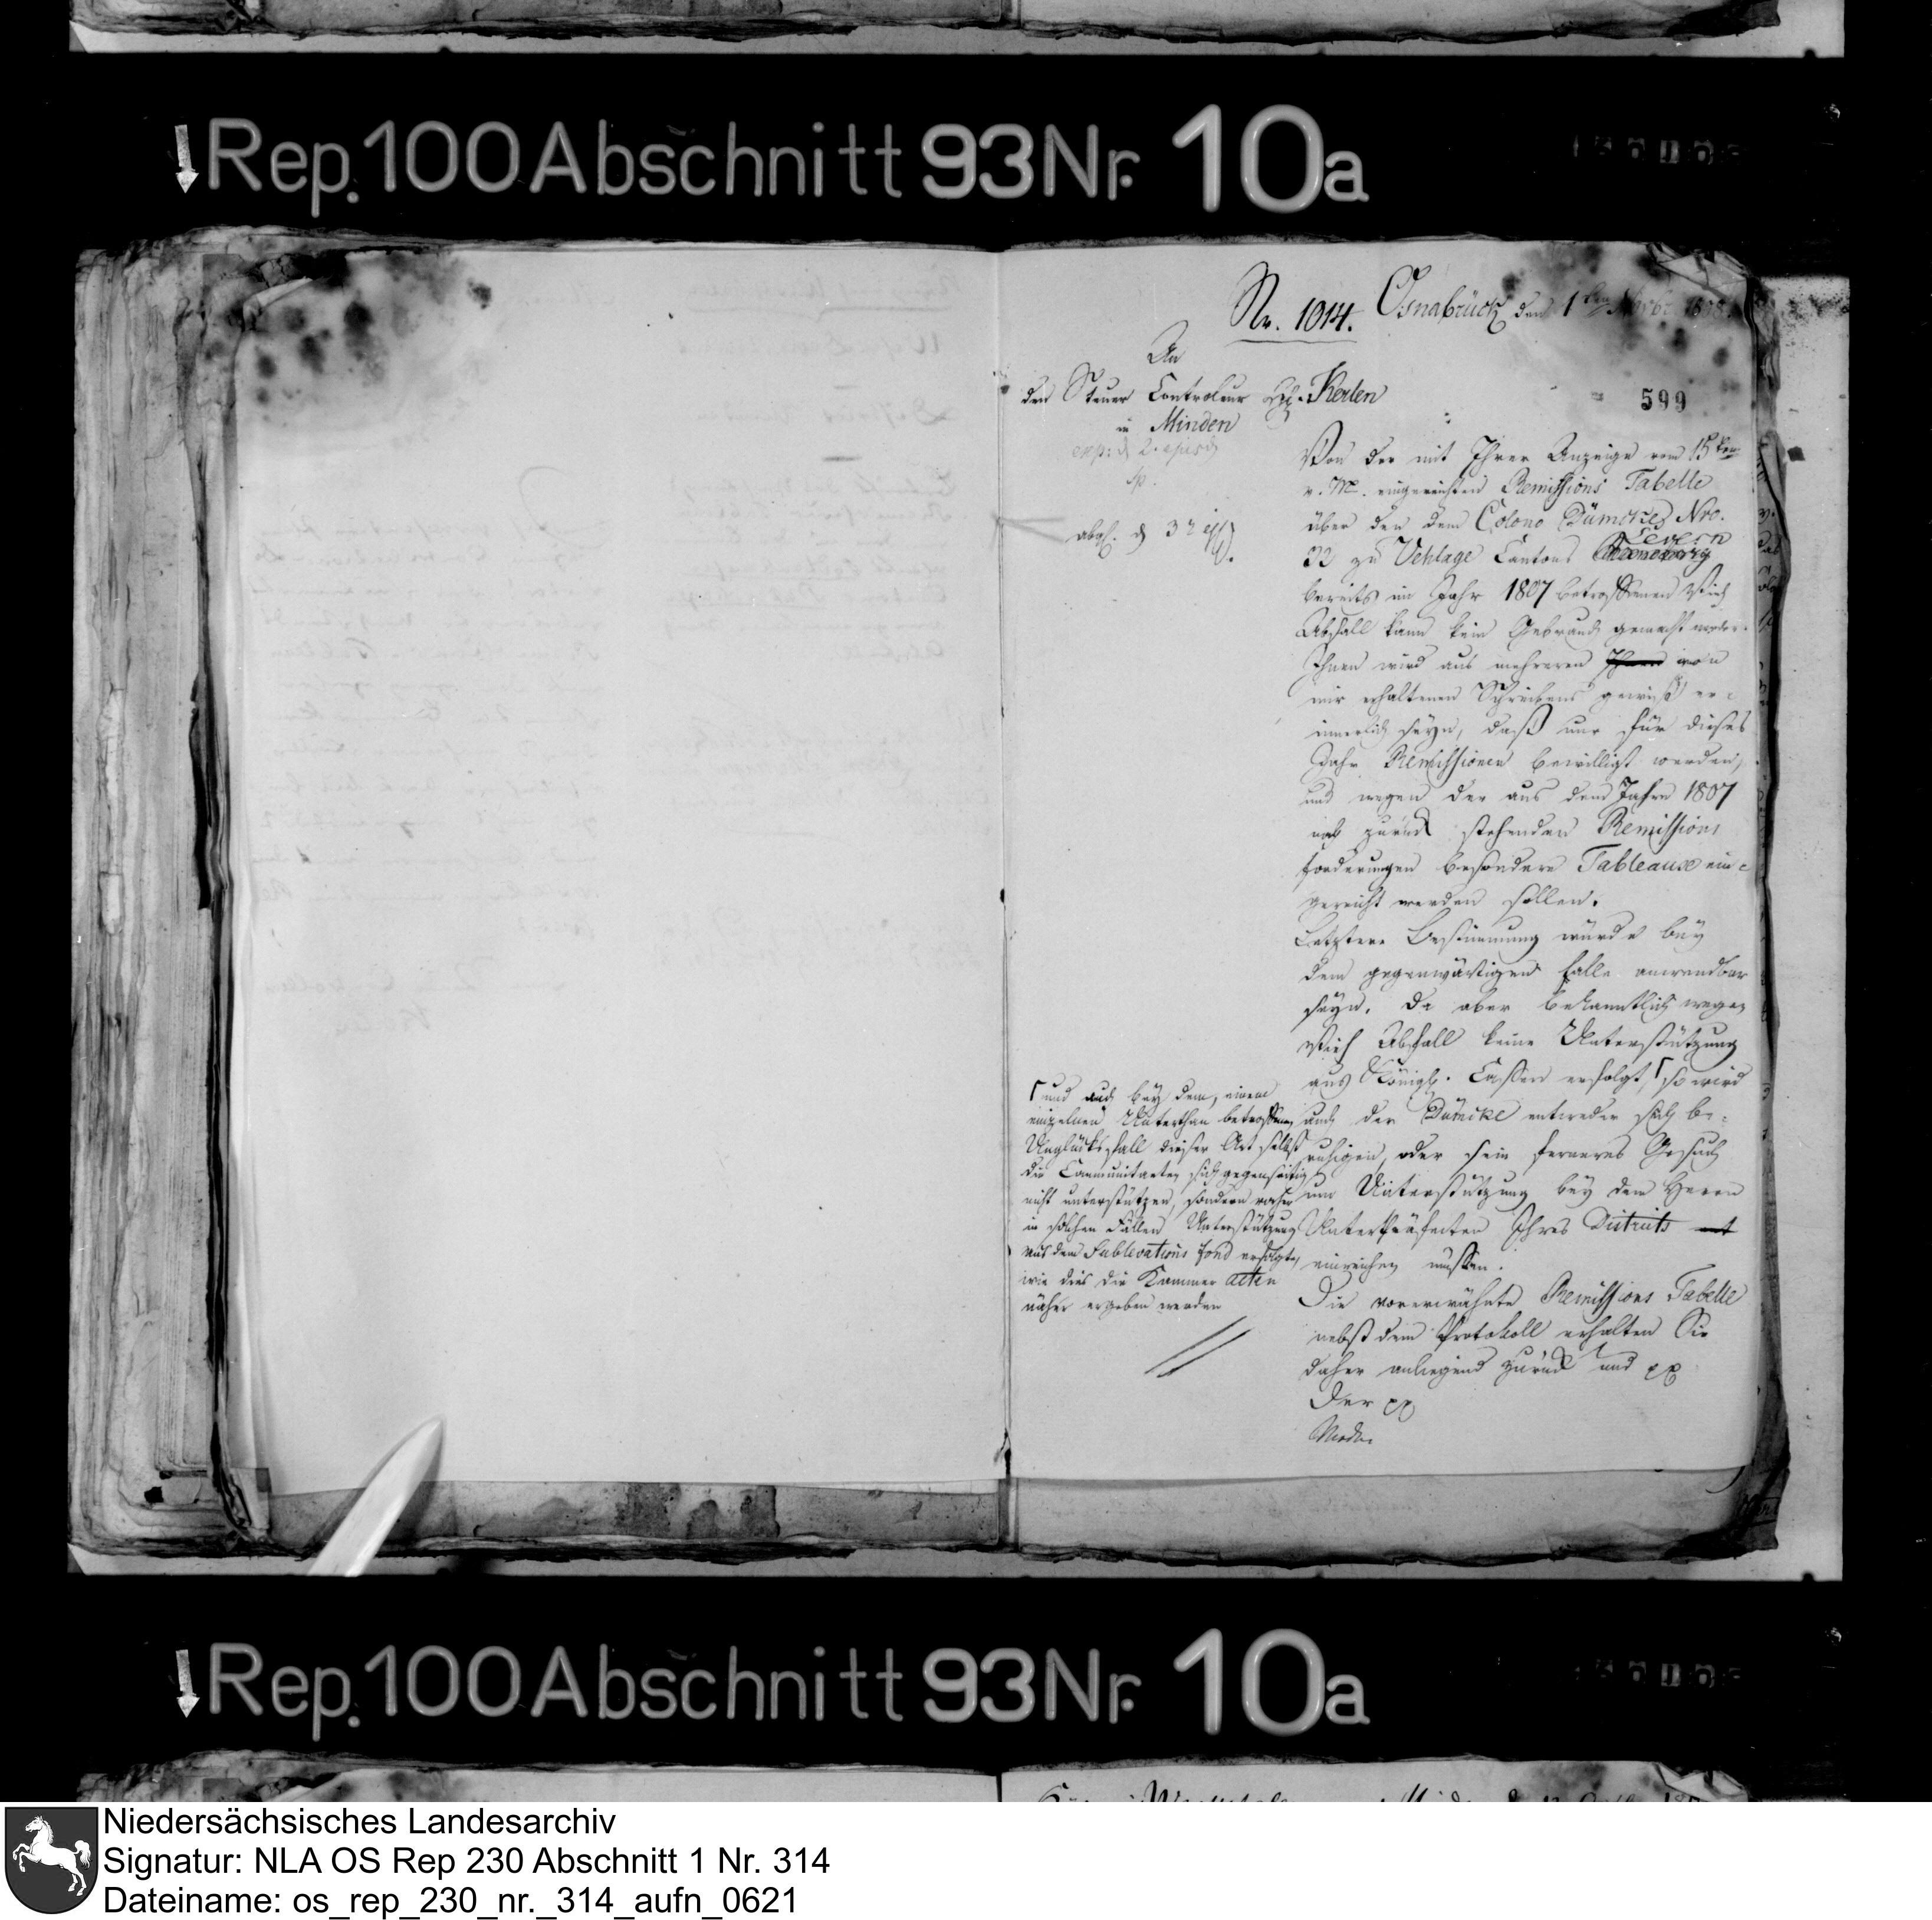 Rep. 100 Abschnitt 93 Nr. 10a
Nr. 1014. Osnabrück den 1ten Novbr 1808.
An
den Steuer Controleur H. Kerlen
in Minden
599
Von der mit Ihrer Anzeige vom 15ten
v. M. eingereichten Remissions Tabelle
über den dem Colono Dümcke Nro.
Levern
32 zu Vehlage Cantons
bereits im Jahr 1807 betroffenen Vieh
Abfall kann kein Gebrauch gemacht werden.
Ihnen wird aus mehreren Ihnen von
mir erhaltenen Schreibens gewiß er-
innerlich seyn, daß nur für dieses
Jahr Remissionen bewilligt werden,
und wegen der aus dem Jahre 1807
noch zurück stehenden Remissions
forderungen besondere Tableaux ein-
gereicht werden sollen.
Letztere Bestimmung würde bey
dem gegenwärtigen Falle anwendbar
seyn. Da aber bekanntlich wegen
Vieh Abfall keine Unterstützung
aus Königl. Cassen erfolgt, so wird
auch der Dümcke entweder sich be-
ruhigen, oder sein ferneres Gesuch
um Unterstützung bey dem Herrn
Unterpräfecten Ihres Districts
einreichen müssen.
Die vorerwähnte Remissions Tabelle
nebst dem Protokoll erhalten Sie
daher anliegend zurück und pp
Der pp
und auch bey dem, einem
einzelnen Unterthan betroffenen
Unglücksfall dieser Art selbst
die Communitaeten sich gegenseitig
nicht unterstützen, sondern vorher
in solchen Fällen Unterstützung
aus dem Sublevations fond erfolgte,
wie dies die Kammer Acten
näher ergeben werden
Rep. 100 Abschnitt 93 Nr. 10a
Niedersächsisches Landesarchiv
Signatur: NLA OS Rep 230 Abschnitt 1 Nr. 314
Dateiname: os_rep_230_nr._314_aufn_0621